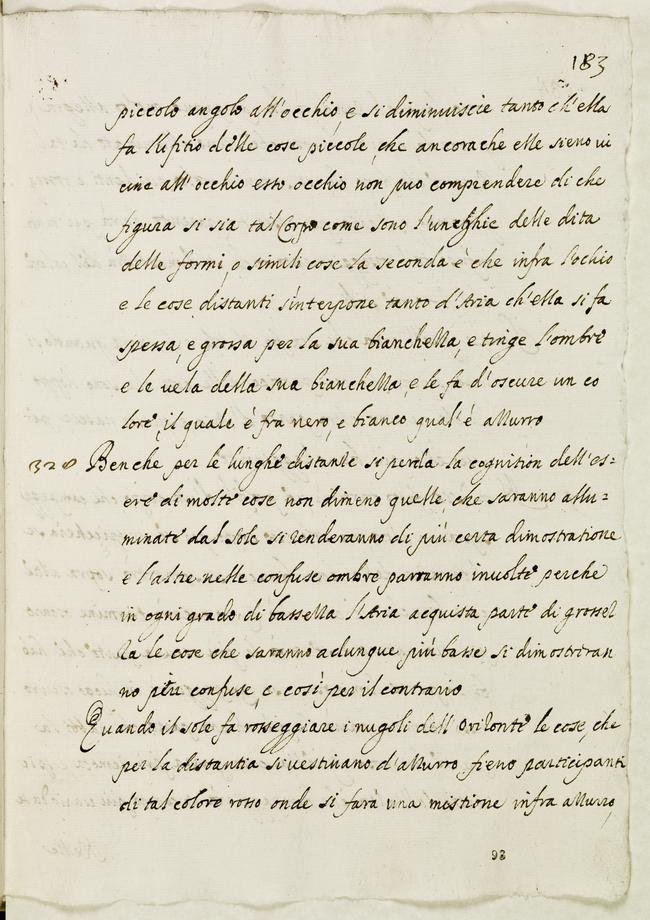 183
piccolo angolo all'occhio, e si diminuiscie tanto ch'ella
fa l'ufitio delle cose piccole, che ancorache elle sieno ui
cine all'occhio esso occhio non puo comprendere di che
figura si sia tal Corpo come sono l'unghie delle dita
delle formi, o simili cose la seconda è che infra l'ochio
e le cose distanti s'interpone tanto d'Aria ch'ella si fa
spessa, e grossa per la sua bianchezza, e tinge l'ombre
e le uela della sua bianchezza, e le fa d'oscure un co
lore, il quale è fra nero, e bianco qual'è azzurro
328 Benche per le lunghe distantie si perda la cognition dell'es=
sere di molte cose non dimeno quelle, che saranno allu=
minate dal sole si renderanno di più certa dimostratione
e l'altre nelle confuse ombre parranno inuolte perche
in ogni grado di bassezza l'Aria acquista parte di grossez
za le cose che saranno adunque più basse si dimostreran
no più confuse, e così per il contrario
Quando il sole fa rosseggiare i nugoli dell'Orizonte le cose, che
per la distantia si uestiuano d'azzurro fieno participanti
di tal colore rosso onde si farà una mistione infra azzurro,
92